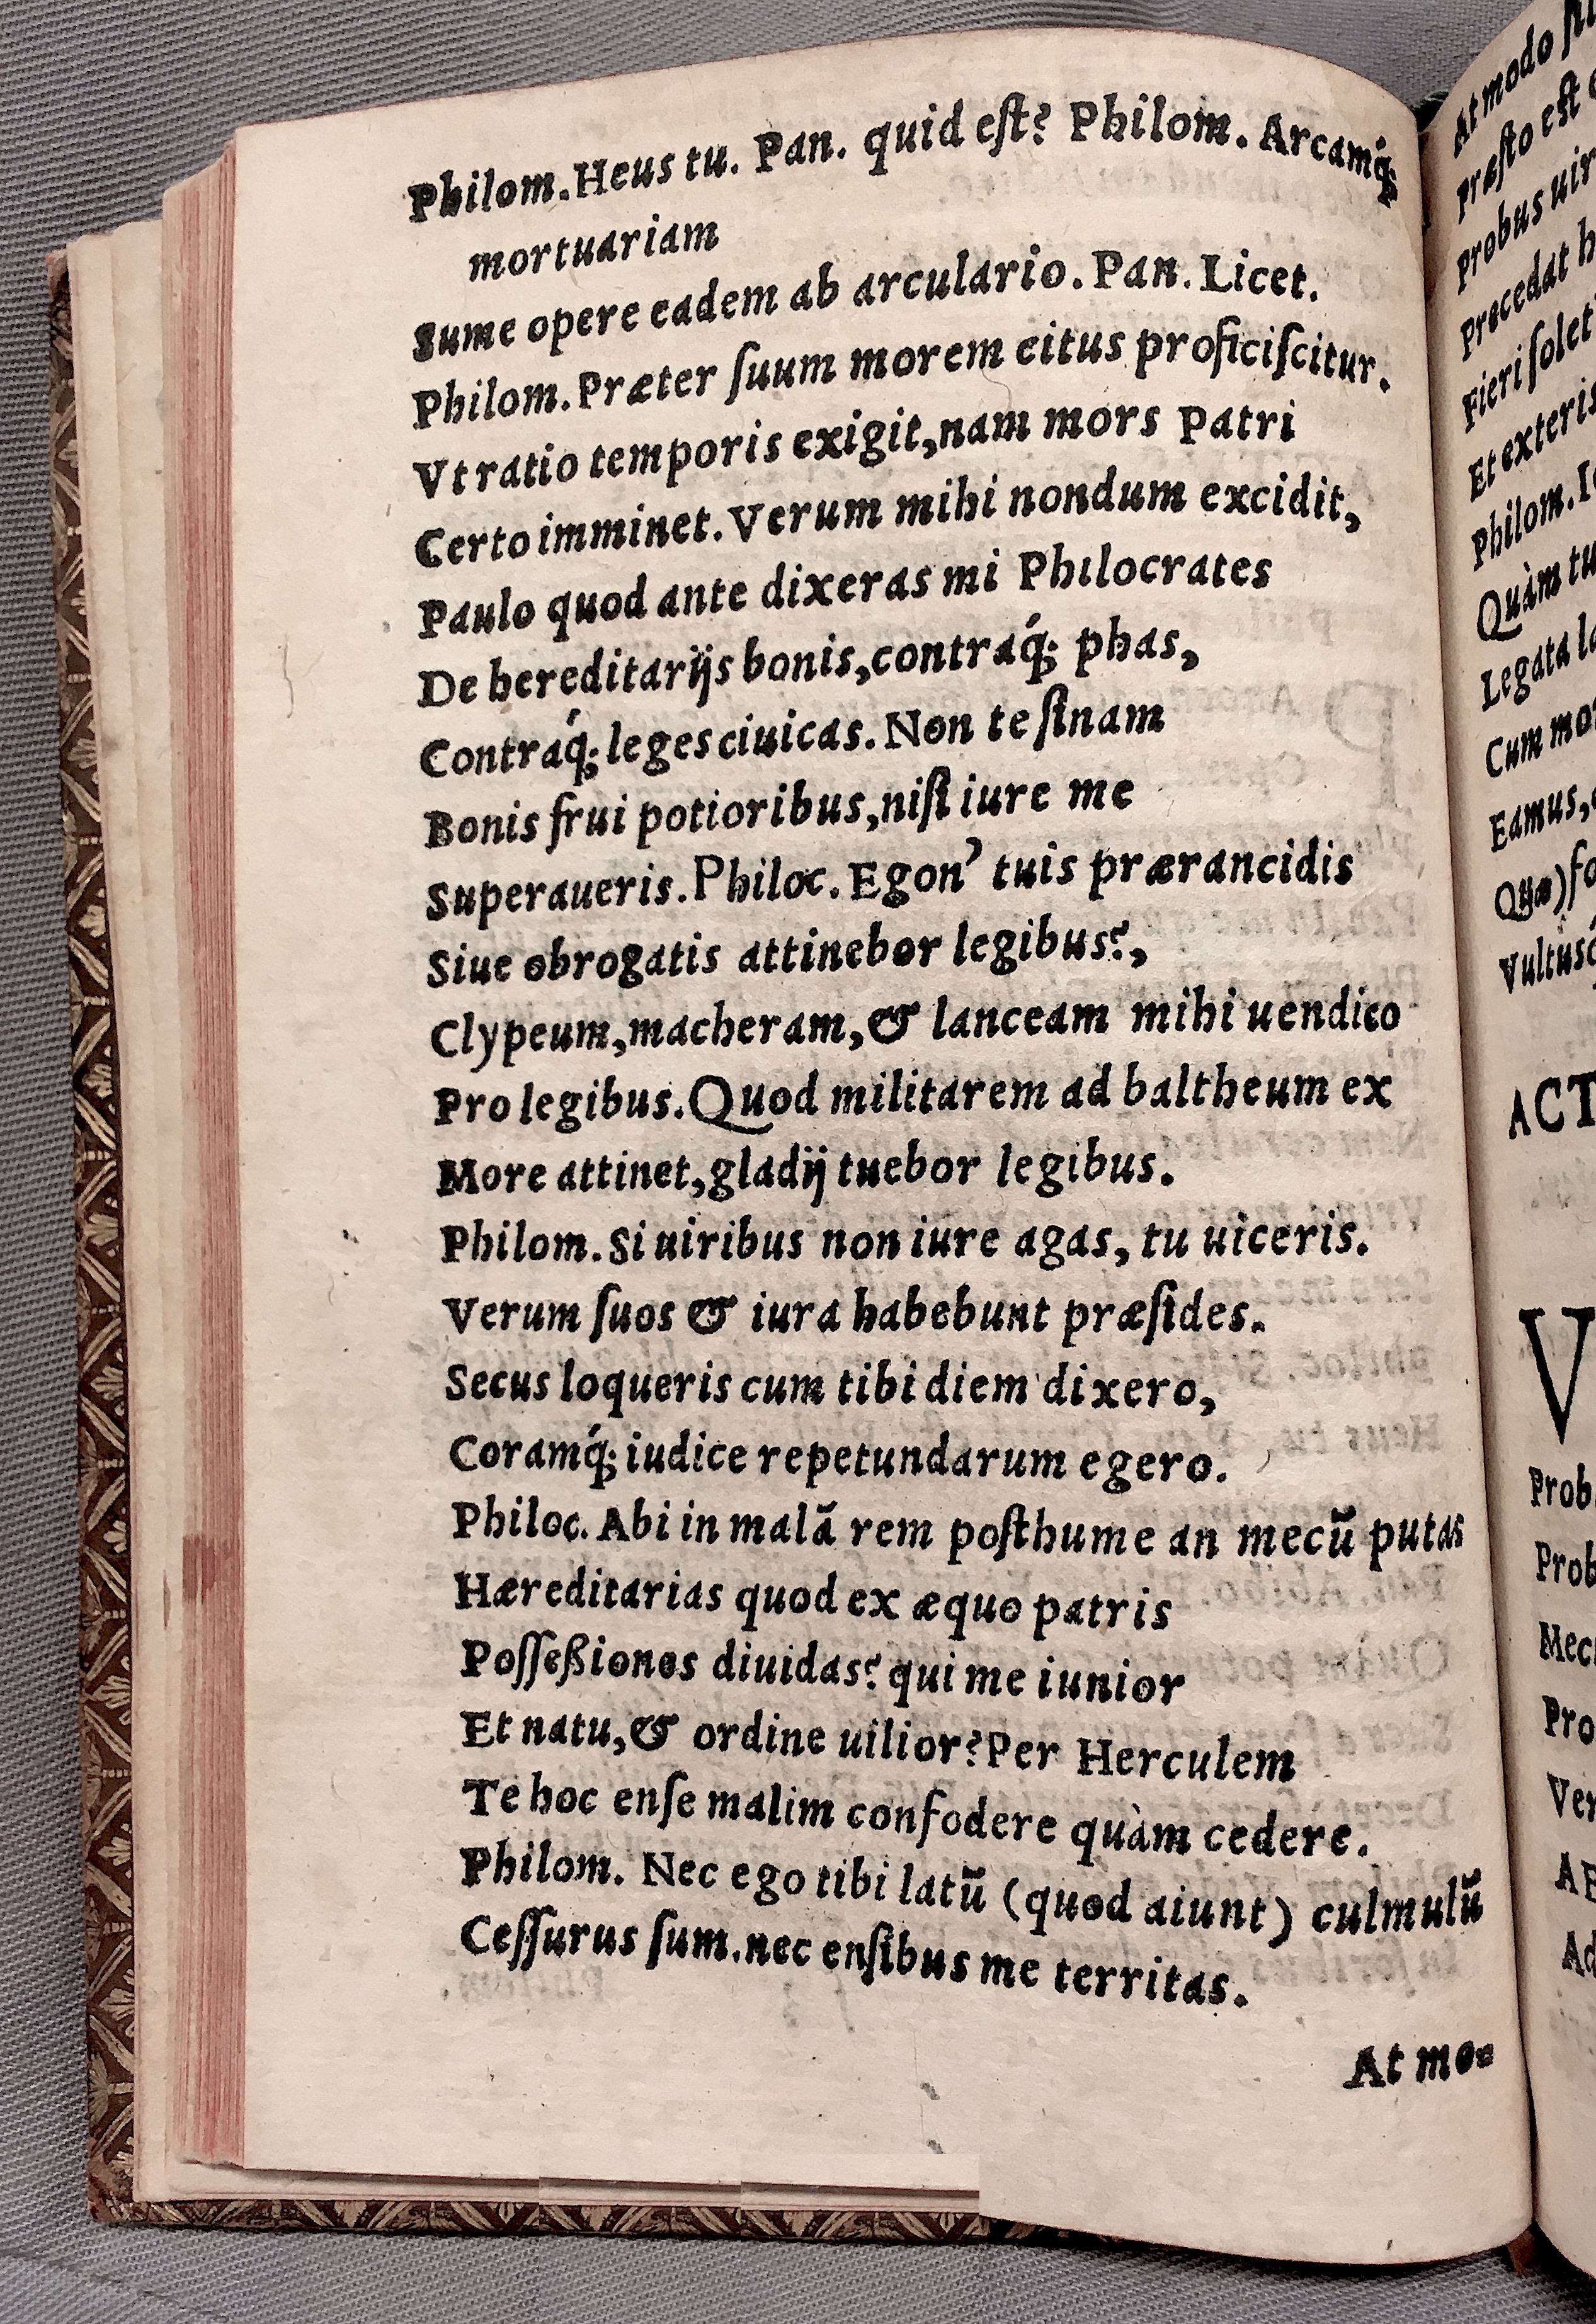 Philom. Heus tu. Pan. quid eſt? Philom. Arcamq́;
mortuariam
Sume opere eadem ab arculario. Pan. Licet.
Philom. Præter ſuum morem citus proficiſcitur.
Vt ratio temporis exigit, nam mors patri
Certo imminet. Verum mihi nondum excidit,
Paulo quod ante dixeras mi Philocrates
De hereditarijs bonis, contraq́; phas,
Contraq́; leges ciuicas. Non te ſinam
Bonis frui potioribus, niſi iure me
Superaueris. Philoc. Egon' tuis prærancidis
Siue obrogatis attinebor legibus?,
Clypeum, macheram, & lanceam mihi uendico
Pro legibus. Quod militarem ad baltheum ex
More attinet, gladij tuebor legibus.
Philom. Si uiribus non iure agas, tu uiceris.
Verum ſuos & iura habebunt præſides.
Secus loqueris cum tibi diem dixero,
Coramq́; iudice repetundarum egero.
Philoc. Abi in malã rem poſthume an mecũ putas
Hæreditarias quod ex æquo patris
Poſſeßiones diuidas? qui me iunior
Et natu, & ordine uilior? Per Herculem
Te hoc enſe malim confodere quàm cedere.
Philom. Nec ego tibi latũ (quod aiunt) culmulũ
Ceſſurus ſum. nec enſibus me territas.
At mo-
At modo
Præſto eſt
Probus uir
Præcedat
Fieri ſolet
Et exteris
Philom.
Quàm
Legata
Cum
Eamus,
Quæ)
ACT
V
Prob
Prob
Pro
Ver